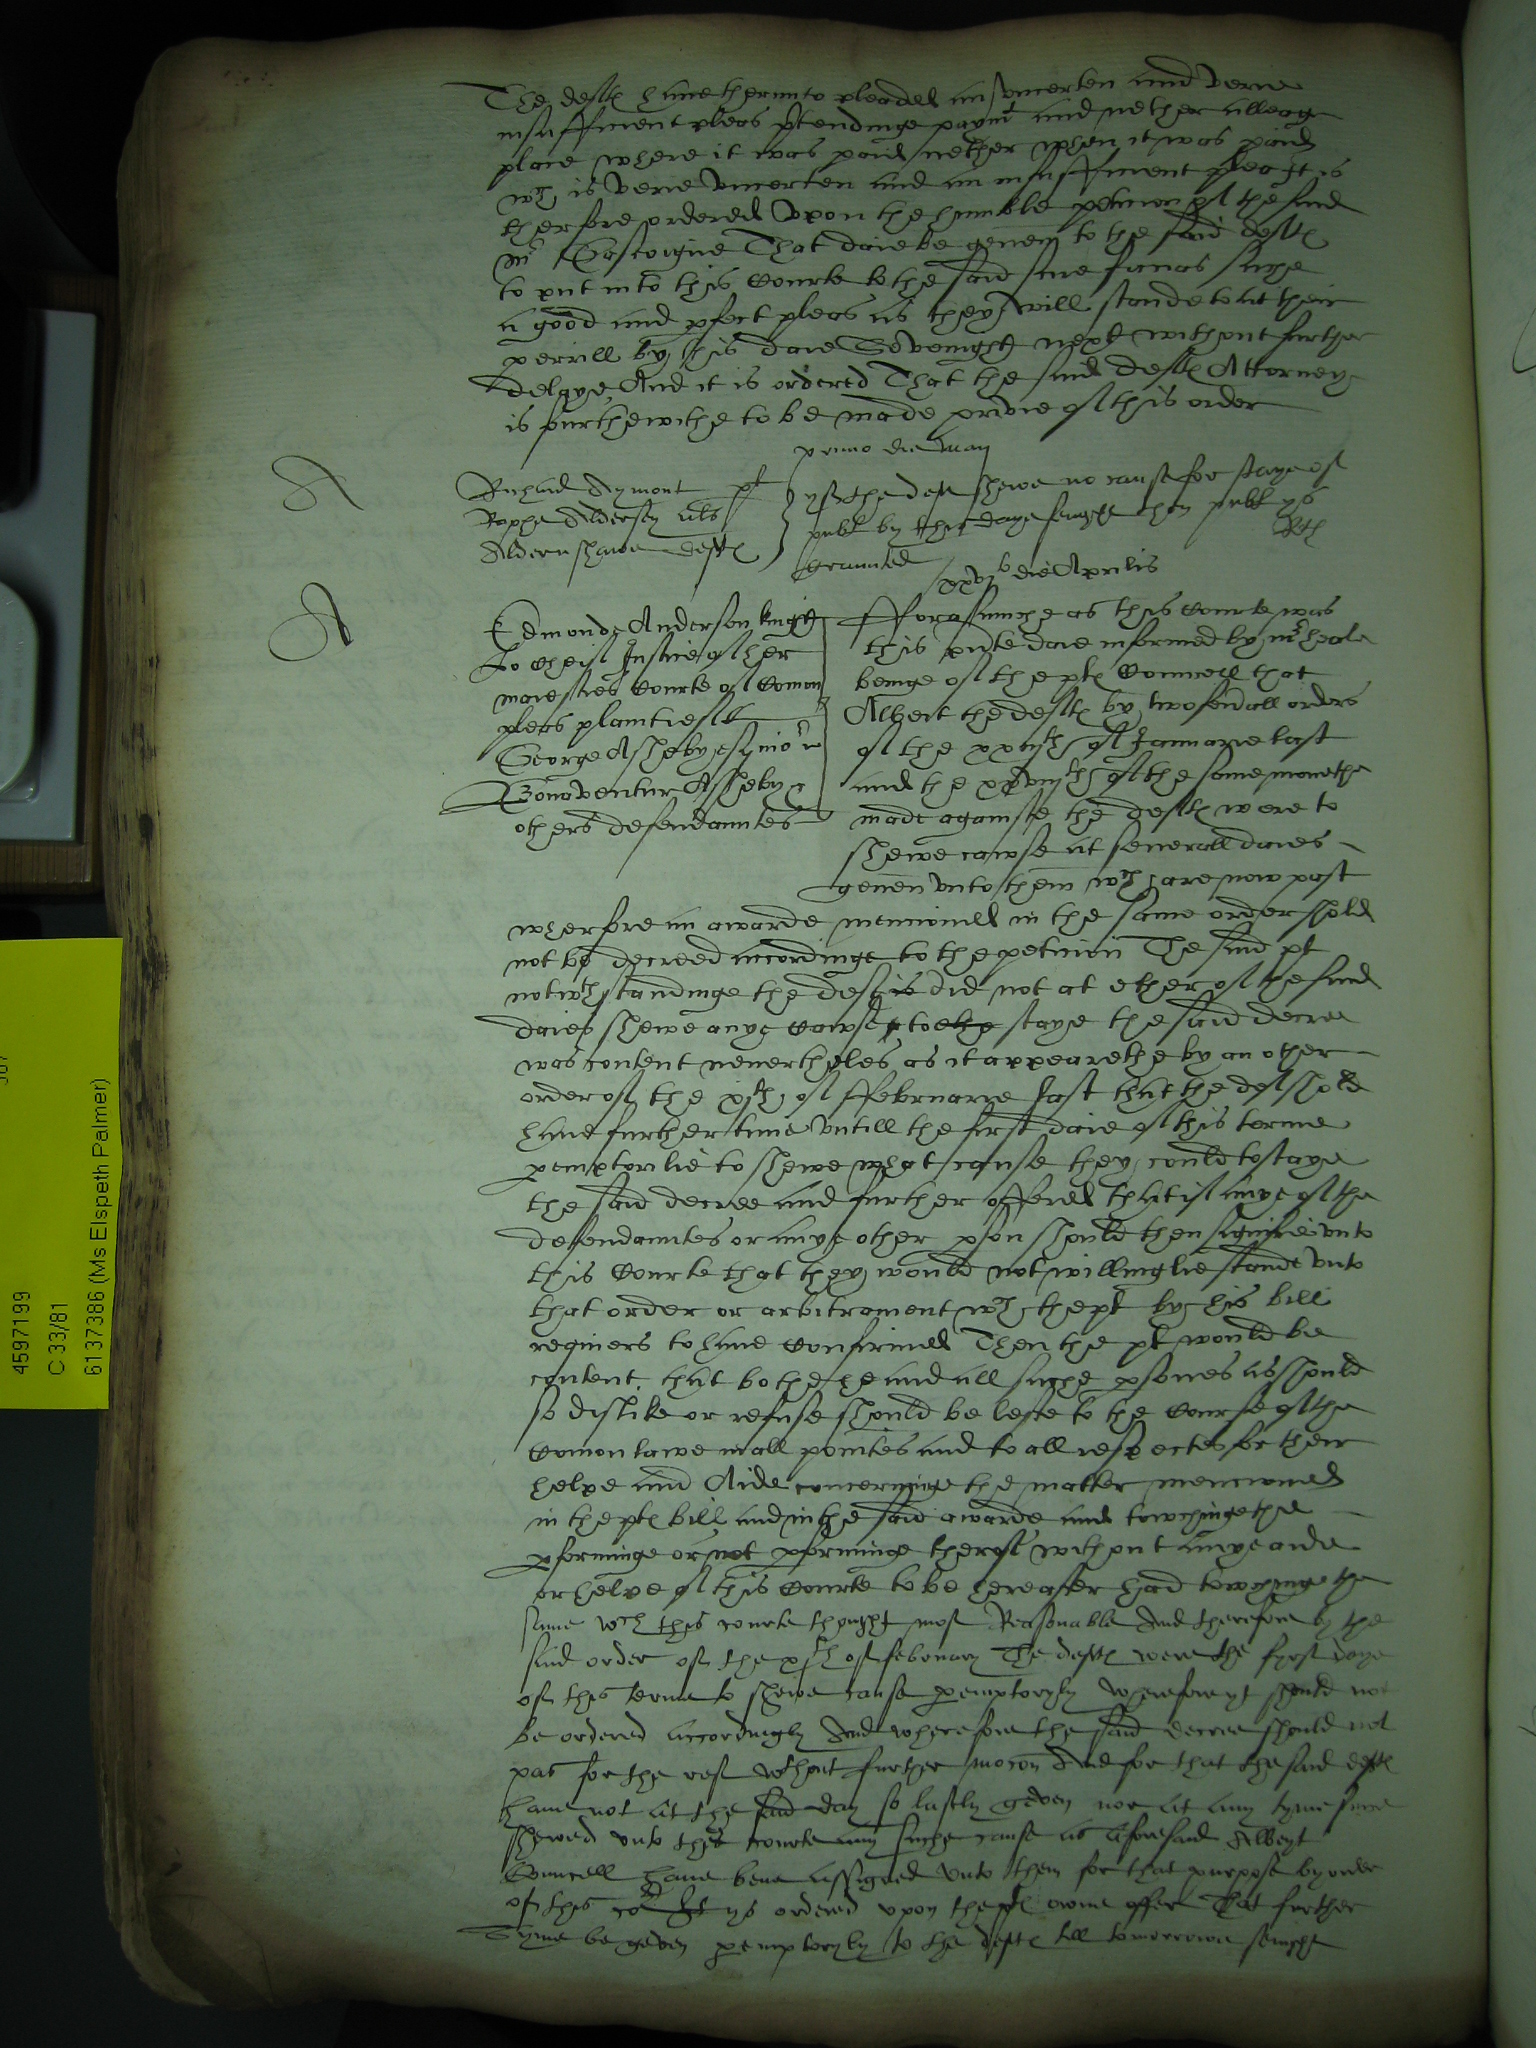 The deftes have therunto pleaded an uncerten and verie
insufficient pleas pretendinge paymt and nether alleage
place where it was paid nether when it was paid
wch is verie uncerten and an insufficient plea It is
therfore ordered upon the humble peticion of the said
mr Gascoigne That daie be geven to the said deftes
to put into this Courte to the said scire facias suche
a good and pfect pleas as they will stande to at their
perrill by this daie Sevenight next without further
delaye, And it is ordered That the said deftes Attorney
is furthewithe to be made privie of this order
primo die Maij
Richard Aymont plt
Raphe Aldersey als
Aldernshawe deftes
yf the deft shewe no cause for staye of
publ by this daye sevnight then publ ys
graunted
Rth
xxvjto die Aprilis
Edmonde Anderson knight
Lo Cheif Justice of her
maiesties Courte of Comon
pleas plaintief
George Asheby esq
Bonaventur Asheby &
others defendauntes
Fforasmuche as this Courte was
this pnte daie informed by mr heale
beinge of the ptes Councell that
Albeit the deftes by two severall orders
of the of Januarie last
and the of the same monethe
made againste the deftes were to
shewe cawse at severall daies
geven unto them wch are now past
wherfore an awarde mencioned in the same order shold
not be decreed accordinge to the peticion The said plt
notwthstandinge the deftes did not at ether of the said
daies shewe anye cawse to the staye the said decree
was content nevertheles as it appearethe by an other
order of the xjth of Ffebruarie last that the deft shold
have further time untill the first daie of this terme
pemptorilie to shewe what cause they could to staye
the said decree and further offered that if anye of the
defendauntes or anye other pson should then signifie unto
this Courte that they would not willinglie stande unto
that order or arbitrament wch the plt by his bill
requiers to have confirmed Then the plt would be
content that bothe he and all suche psones as should
so dislike or refuse should be lefte to the Course of the
Comon lawe in all pointes and to all respectes for their
helpe and Aide concerninge the matter mencioned
in the ptes bill and in the said awarde and towchinge the
pforminge or not pforminge therof without anye aide
or helpe of this Courte to be hereafter had towchinge the
same wch this courte thought most Reasonable And therefore by the
said order of the xjth of february The deftes were the fyrst daye
of this terme to shewe cause pemptoryly wherefore yt should not
be ordered accordingly And wherefore the said decree should not
pas for the rest wthout further mocon And for that the said deftes
have not at the said day so lastly geven nor at any tyme since
shewed unto this courte any suche cause as aforesaid Albeyt
Councell have bene assigned unto them for that purpose by order
of this cort It ys ordered upon the ptes owne offer That further
Tyme be geven pemptoryly to the deftes till tomorrowe sevnight
4597199
C 33/81
6137386 (Ms Elspeth Palmer)